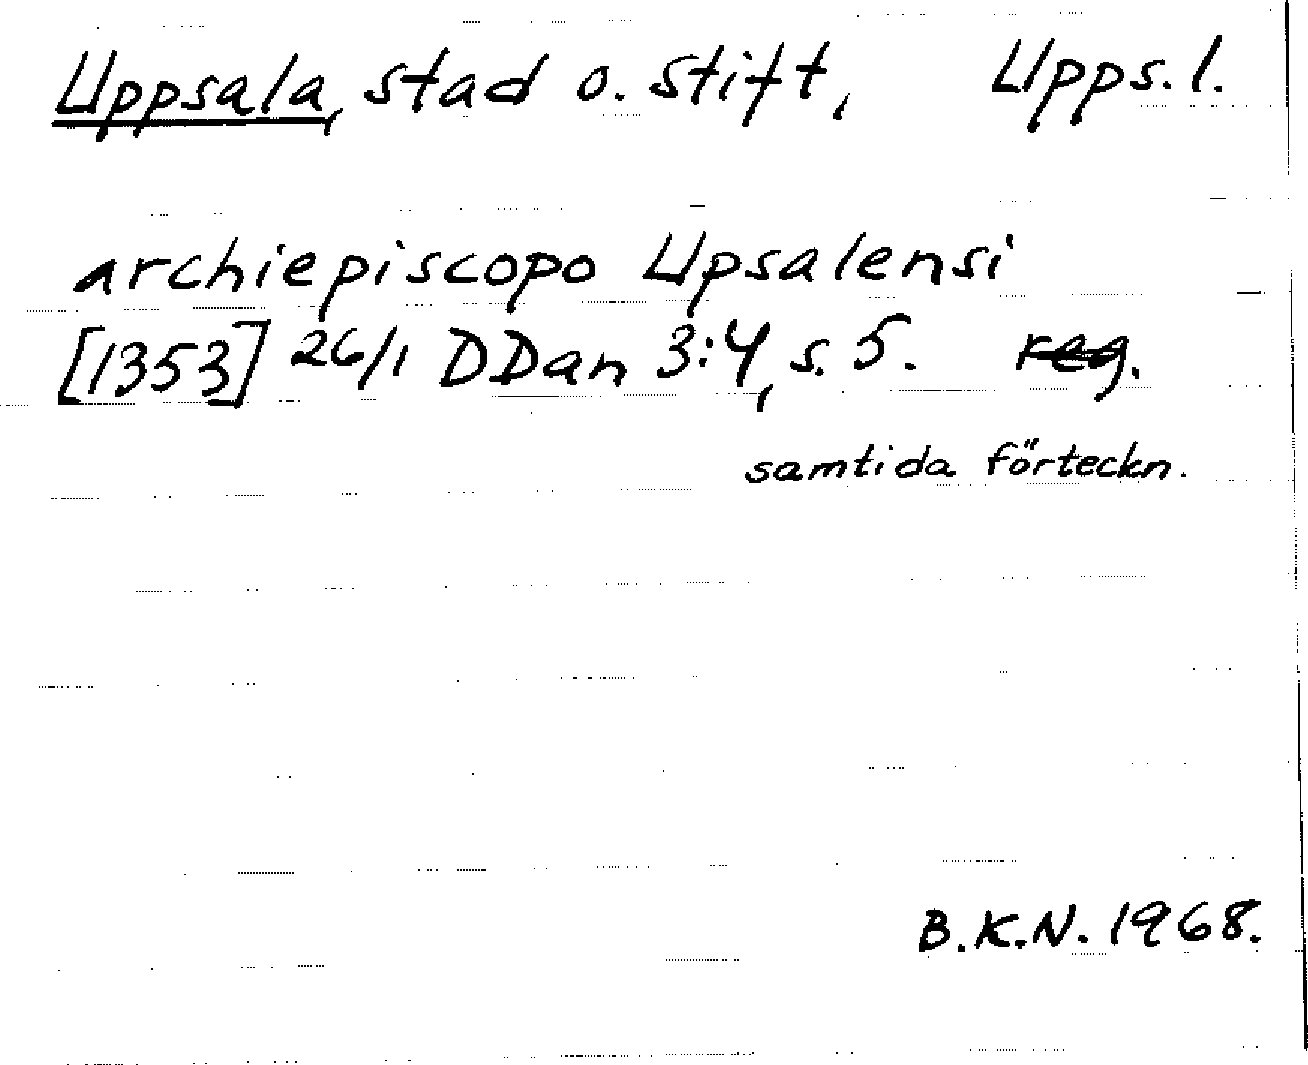 Uppsala, stad o. stift, Upps. l.
archiepiscopo Upsalensi
[1353] 26/1 DDan 3:4, s. 5. reg.
samtida förteckn.
B.K.N. 1968.